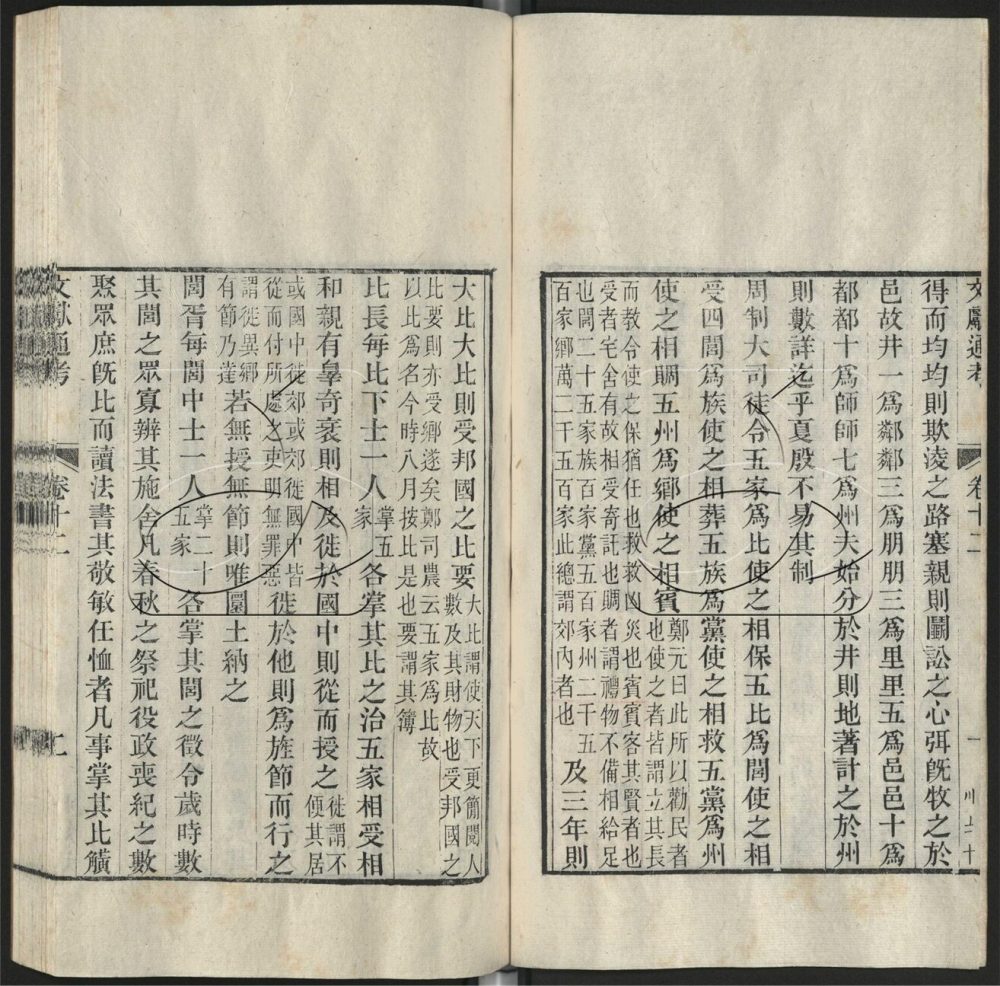 得而均均則欺淩之路塞親則鬭訟之心弭旣牧之於
邑故井一爲鄰鄰三爲朋朋三爲里里五爲邑邑十爲
都都十爲師師七爲州夫始分於井則地著計之於州
則數詳迄乎夏殷不易其制
周制大司徒令五家爲比使之相保五比爲閭使之相
受四閭爲族使之相葬五族爲黨使之相救五黨爲州
使之相賙五州爲鄉使之相賓
鄭元曰此所以勸民者
也使之者皆謂立其長
而教令使之保猶任也救救凶災也賓賓客其賢者也
受者宅舍有故相受寄託也賙者謂禮物不備相給足
也閭二十五家族百家黨五百家州二千五
百家鄉萬二千五百家此總謂郊內者也
及三年則
文獻通考
卷十二
大比大比則受邦國之比要
大比謂使天下更簡閱人
數及其財物也受邦國之
比要則亦受鄉遂矣鄭司農云五家爲比故
以比爲名今時八月按比是也要謂其簿
比長每比下士一人
掌五
家
各掌其比之治五家相受相
和親有辠奇衺則相及徙於國中則從而授之
徙謂不
便其居
或國中徙郊或郊徙國中皆
從而付所處之吏明無罪惡
徙於他則爲旌節而行之
謂徙異鄉
有節乃達
若無授無節則唯圜土納之
閭胥每閭中士一人
掌二十
五家
各掌其閭之徵令歲時數
其閭之眾寡辨其施舍凡春秋之祭祀役政喪紀之數
聚眾庶旣比而讀法書其敬敏任恤者凡事掌其比觵
文獻通考
卷十二